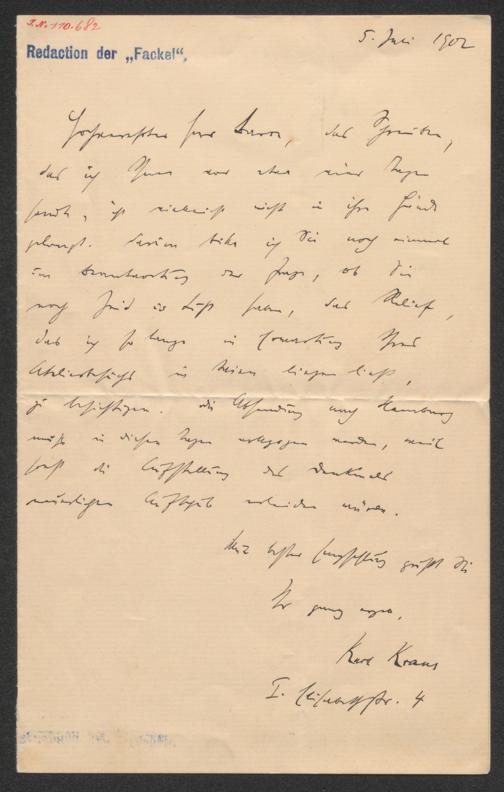 I.N. 110.682
Redaction der „Fackel“,
5. Juli 1902
Hochverehrter Herr Baron, das Schreiben,
das ich Ihnen vor etwa einer Tagen
sandte, ist vielleicht nicht in Ihre Hände
gelangt. Darum bitte ich Sie noch einmal
um Beantwortung der Frage, ob Sie
noch Zeit u Lust haben, das Relief,
das ich so lange in Erwartung Ihres
Atelierbesuchs in Wien liegen ließ,
zu besichtigen. Die Absendung nach Hamburg
muß in diesen Tagen vollzogen werden, weil
sonst die Aufstellung des Denkmals
neuerlichen Aufschub erleiden müßte.
Mit bester Empfehlung grüßt Sie
Ihr ganz erg.,
Karl Kraus
I. Elisabethstr. 4